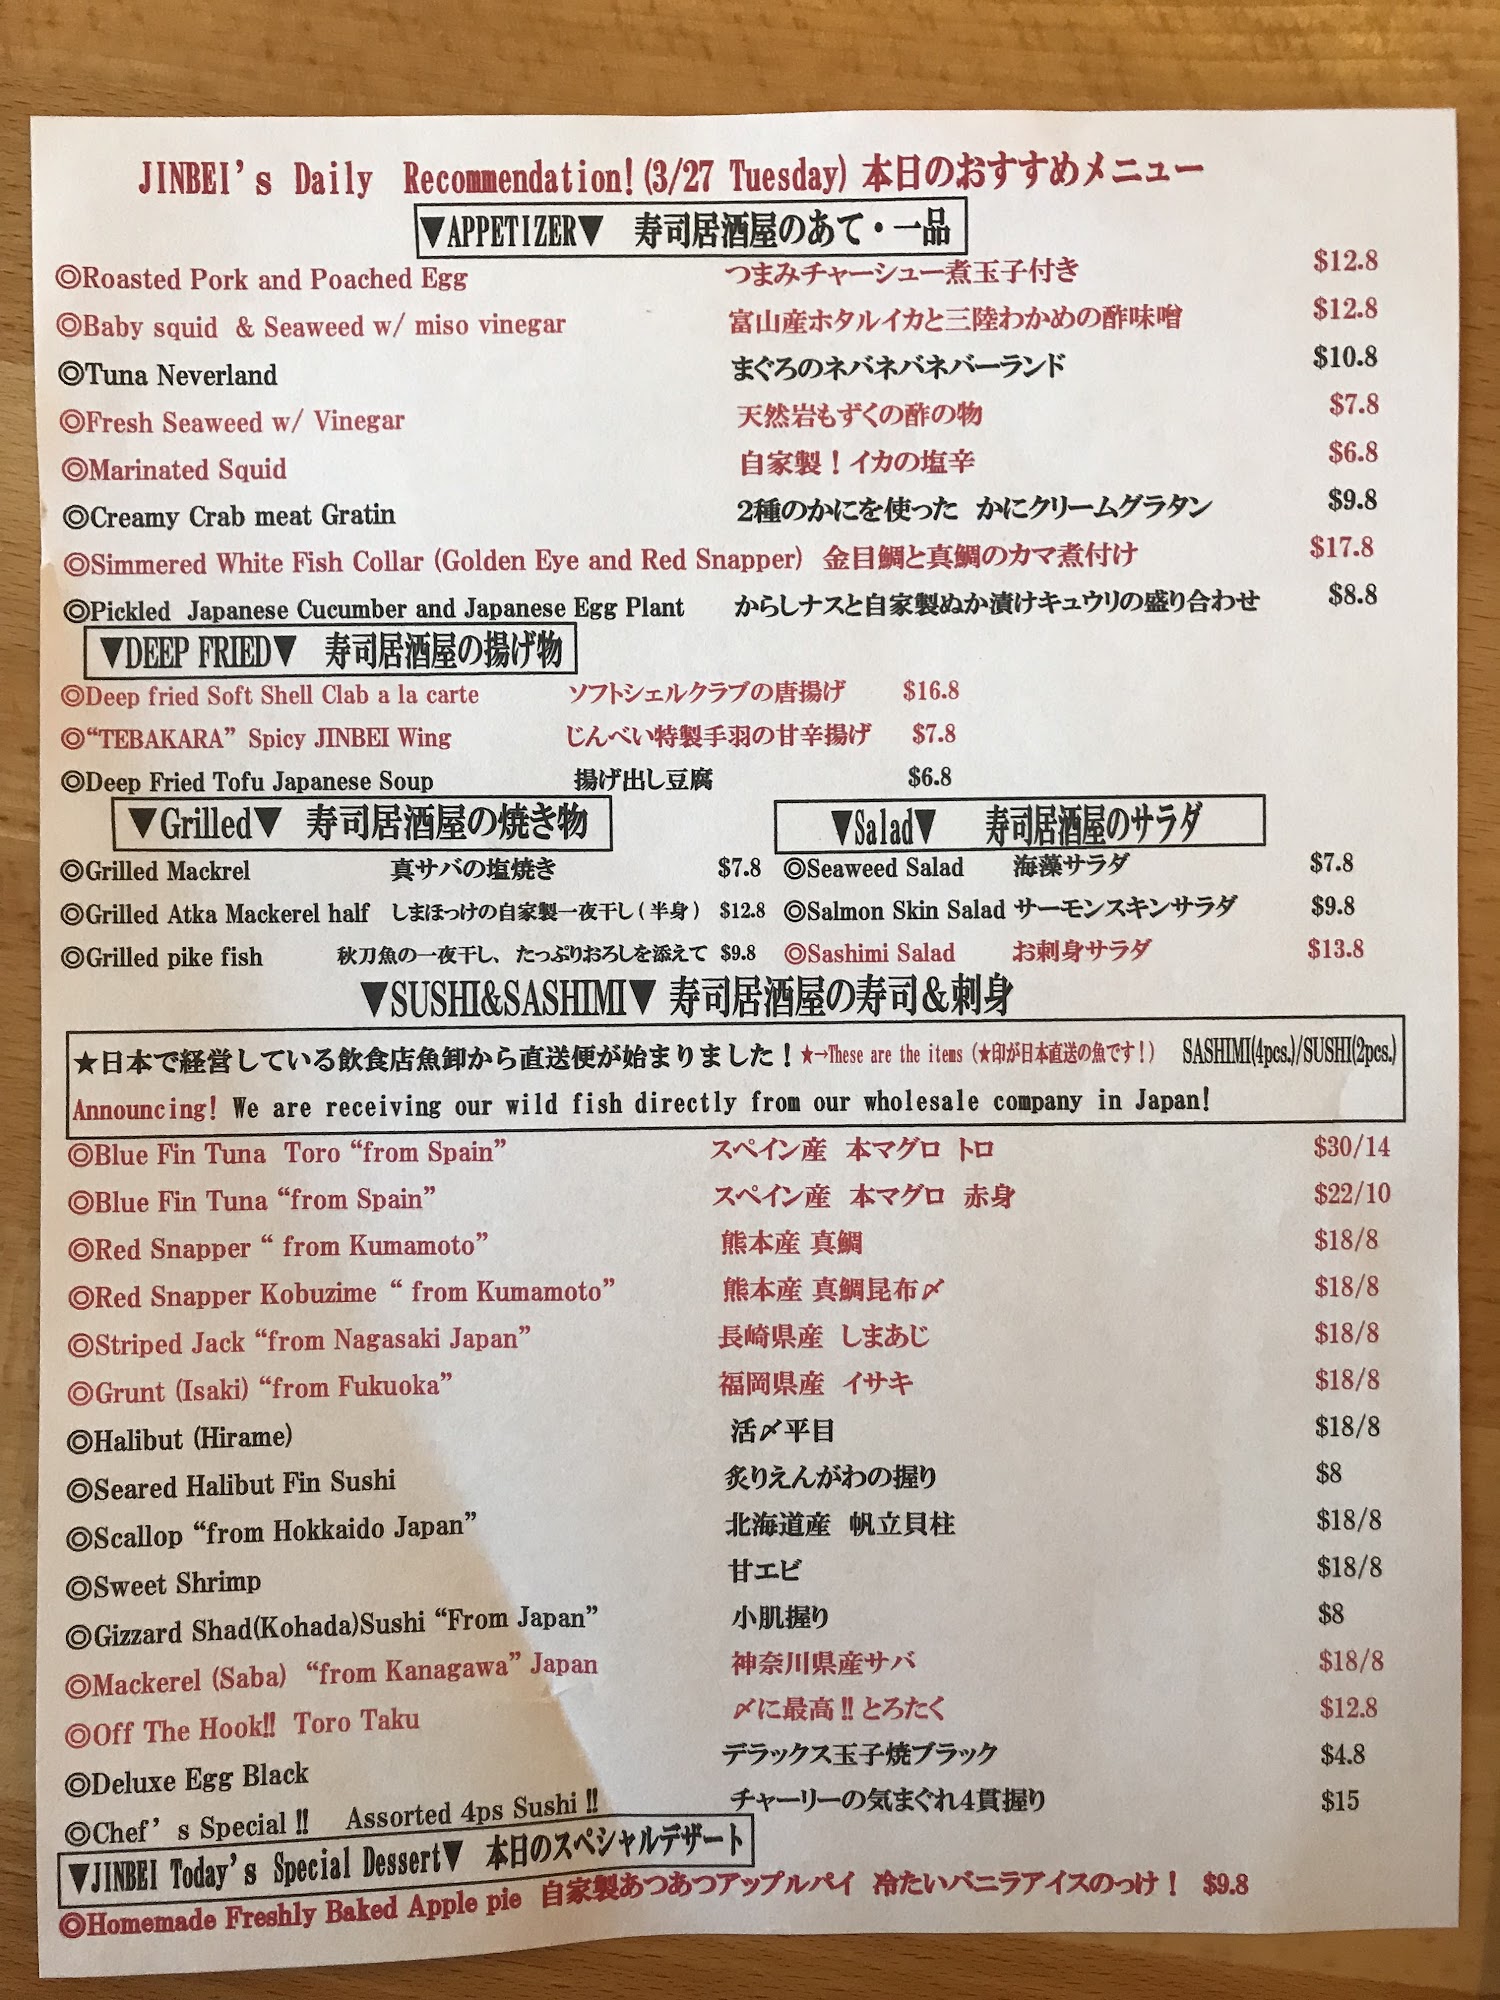 JINBEI's Daily Recommendation!(3/27 Tuesday) 本日のおすすめメニュー
▼APPETIZER▼ 寿司居酒屋のあて・一品
◎Roasted Pork and Poached Egg つまみチャーシュー煮玉子付き $12.8
◎Baby squid & Seaweed w/ miso vinegar 富山産ホタルイカと三陸わかめの酢味噌 $12.8
◎Tuna Neverland まぐろのネバネバネバーランド $10.8
◎Fresh Seaweed w/ Vinegar 天然岩もずくの酢の物 $7.8
◎Marinated Squid 自家製！イカの塩辛 $6.8
◎Creamy Crab meat Gratin 2種のかにを使った かにクリームグラタン $9.8
◎Simmered White Fish Collar (Golden Eye and Red Snapper) 金目鯛と真鯛のカマ煮付け $17.8
◎Pickled Japanese Cucumber and Japanese Egg Plant からしナスと自家製ぬか漬けキュウリの盛り合わせ $8.8
▼DEEP FRIED▼ 寿司居酒屋の揚げ物
◎Deep fried Soft Shell Clab a la carte ソフトシェルクラブの唐揚げ $16.8
◎“TEBAKARA” Spicy JINBEI Wing じんべい特製手羽の甘辛揚げ $7.8
◎Deep Fried Tofu Japanese Soup 揚げ出し豆腐 $6.8
▼Grilled▼ 寿司居酒屋の焼き物
◎Grilled Mackrel 真サバの塩焼き $7.8
◎Grilled Atka Mackerel half しまほっけの自家製一夜干し(半身) $12.8
◎Grilled pike fish 秋刀魚の一夜干し、たっぷりおろしを添えて $9.8
▼Salad▼ 寿司居酒屋のサラダ
◎Seaweed Salad 海藻サラダ $7.8
◎Salmon Skin Salad サーモンスキンサラダ $9.8
◎Sashimi Salad お刺身サラダ $13.8
▼SUSHI&SASHIMI▼ 寿司居酒屋の寿司＆刺身
★日本で経営している飲食店魚卸から直送便が始まりました！★→These are the items (★印が日本直送の魚です！) SASHIMI(4pcs.)/SUSHI(2pcs.)
Announcing! We are receiving our wild fish directly from our wholesale company in Japan!
◎Blue Fin Tuna Toro “from Spain” スペイン産 本マグロ トロ $30/14
◎Blue Fin Tuna “from Spain” スペイン産 本マグロ 赤身 $22/10
◎Red Snapper “ from Kumamoto” 熊本産 真鯛 $18/8
◎Red Snapper Kobuzime “ from Kumamoto” 熊本産 真鯛昆布〆 $18/8
◎Striped Jack “from Nagasaki Japan” 長崎県産 しまあじ $18/8
◎Grunt (Isaki) “from Fukuoka” 福岡県産 イサキ $18/8
◎Halibut (Hirame) 活〆平目 $18/8
◎Seared Halibut Fin Sushi 炙りえんがわの握り $8
◎Scallop “from Hokkaido Japan” 北海道産 帆立貝柱 $18/8
◎Sweet Shrimp 甘エビ $18/8
◎Gizzard Shad(Kohada)Sushi “From Japan” 小肌握り $8
◎Mackerel (Saba) “from Kanagawa” Japan 神奈川県産サバ $18/8
◎Off The Hook!! Toro Taku 〆に最高!! とろたく $12.8
◎Deluxe Egg Black デラックス玉子焼ブラック $4.8
◎Chef's Special !! Assorted 4ps Sushi !! チャーリーの気まぐれ4貫握り $15
▼JINBEI Today's Special Dessert▼ 本日のスペシャルデザート
◎Homemade Freshly Baked Apple pie 自家製あつあつアップルパイ 冷たいバニラアイスのっけ！ $9.8